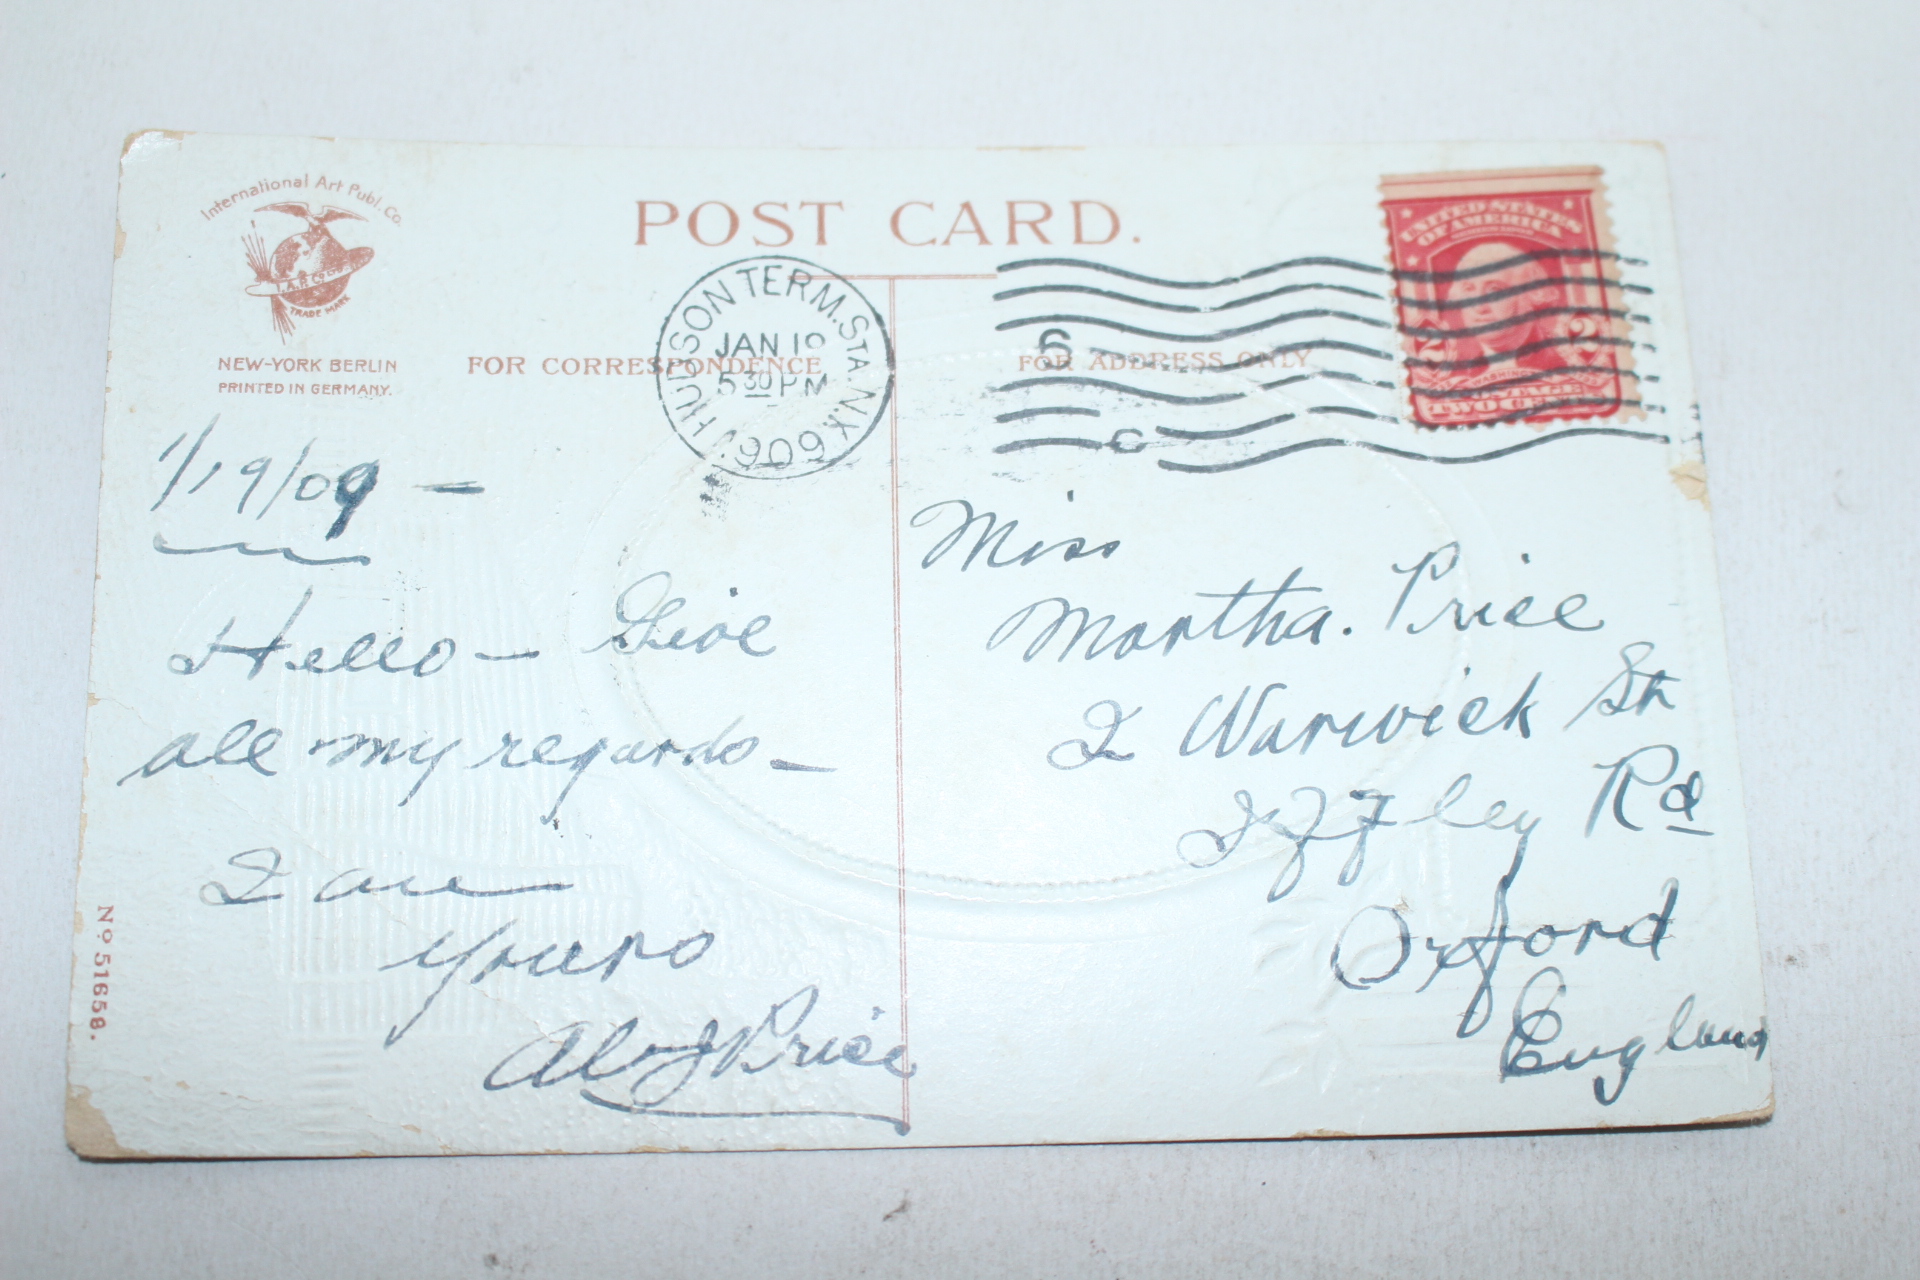 International Art Publ. Co.
I.A.P. Co.
TRADE MARK
NEW-YORK BERLIN
PRINTED IN GERMANY.
POST CARD.
FOR CORRESPONDENCE
FOR ADDRESS ONLY
HUDSON TERM. STA. N.Y.
JAN 19
5 30 PM
1909
6
C
UNITED STATES
OF AMERICA
2 2
WASHINGTON
POSTAGE
TWO CENTS
1/19/09 —
Hello — Give
all my regards —
I am
Yours
Al J Price
Miss
Martha. Price
2 Warwick St
Iffley Rd
Oxford
England
No. 51658.